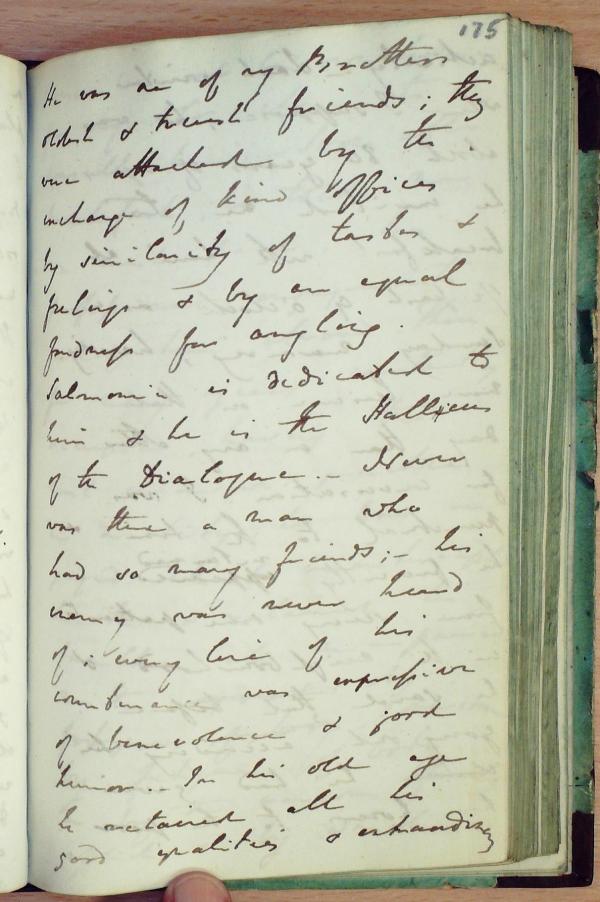 175
He was one of my Brothers
oldest & truest friends; they
were attached by the
inchange of kind offices
by similarity of tastes &
feelings & by an equal
fondness for angling.
Salmonia is dedicated to
him & he is the Hallieus
of the Dialogue. - Never
was there a man who
had so many friends; - his
enemy was never heard
of; every line of his
countenance was expressive
of benevolence & good
humor. - In his old age
he retained all his
good qualities & extraordinary